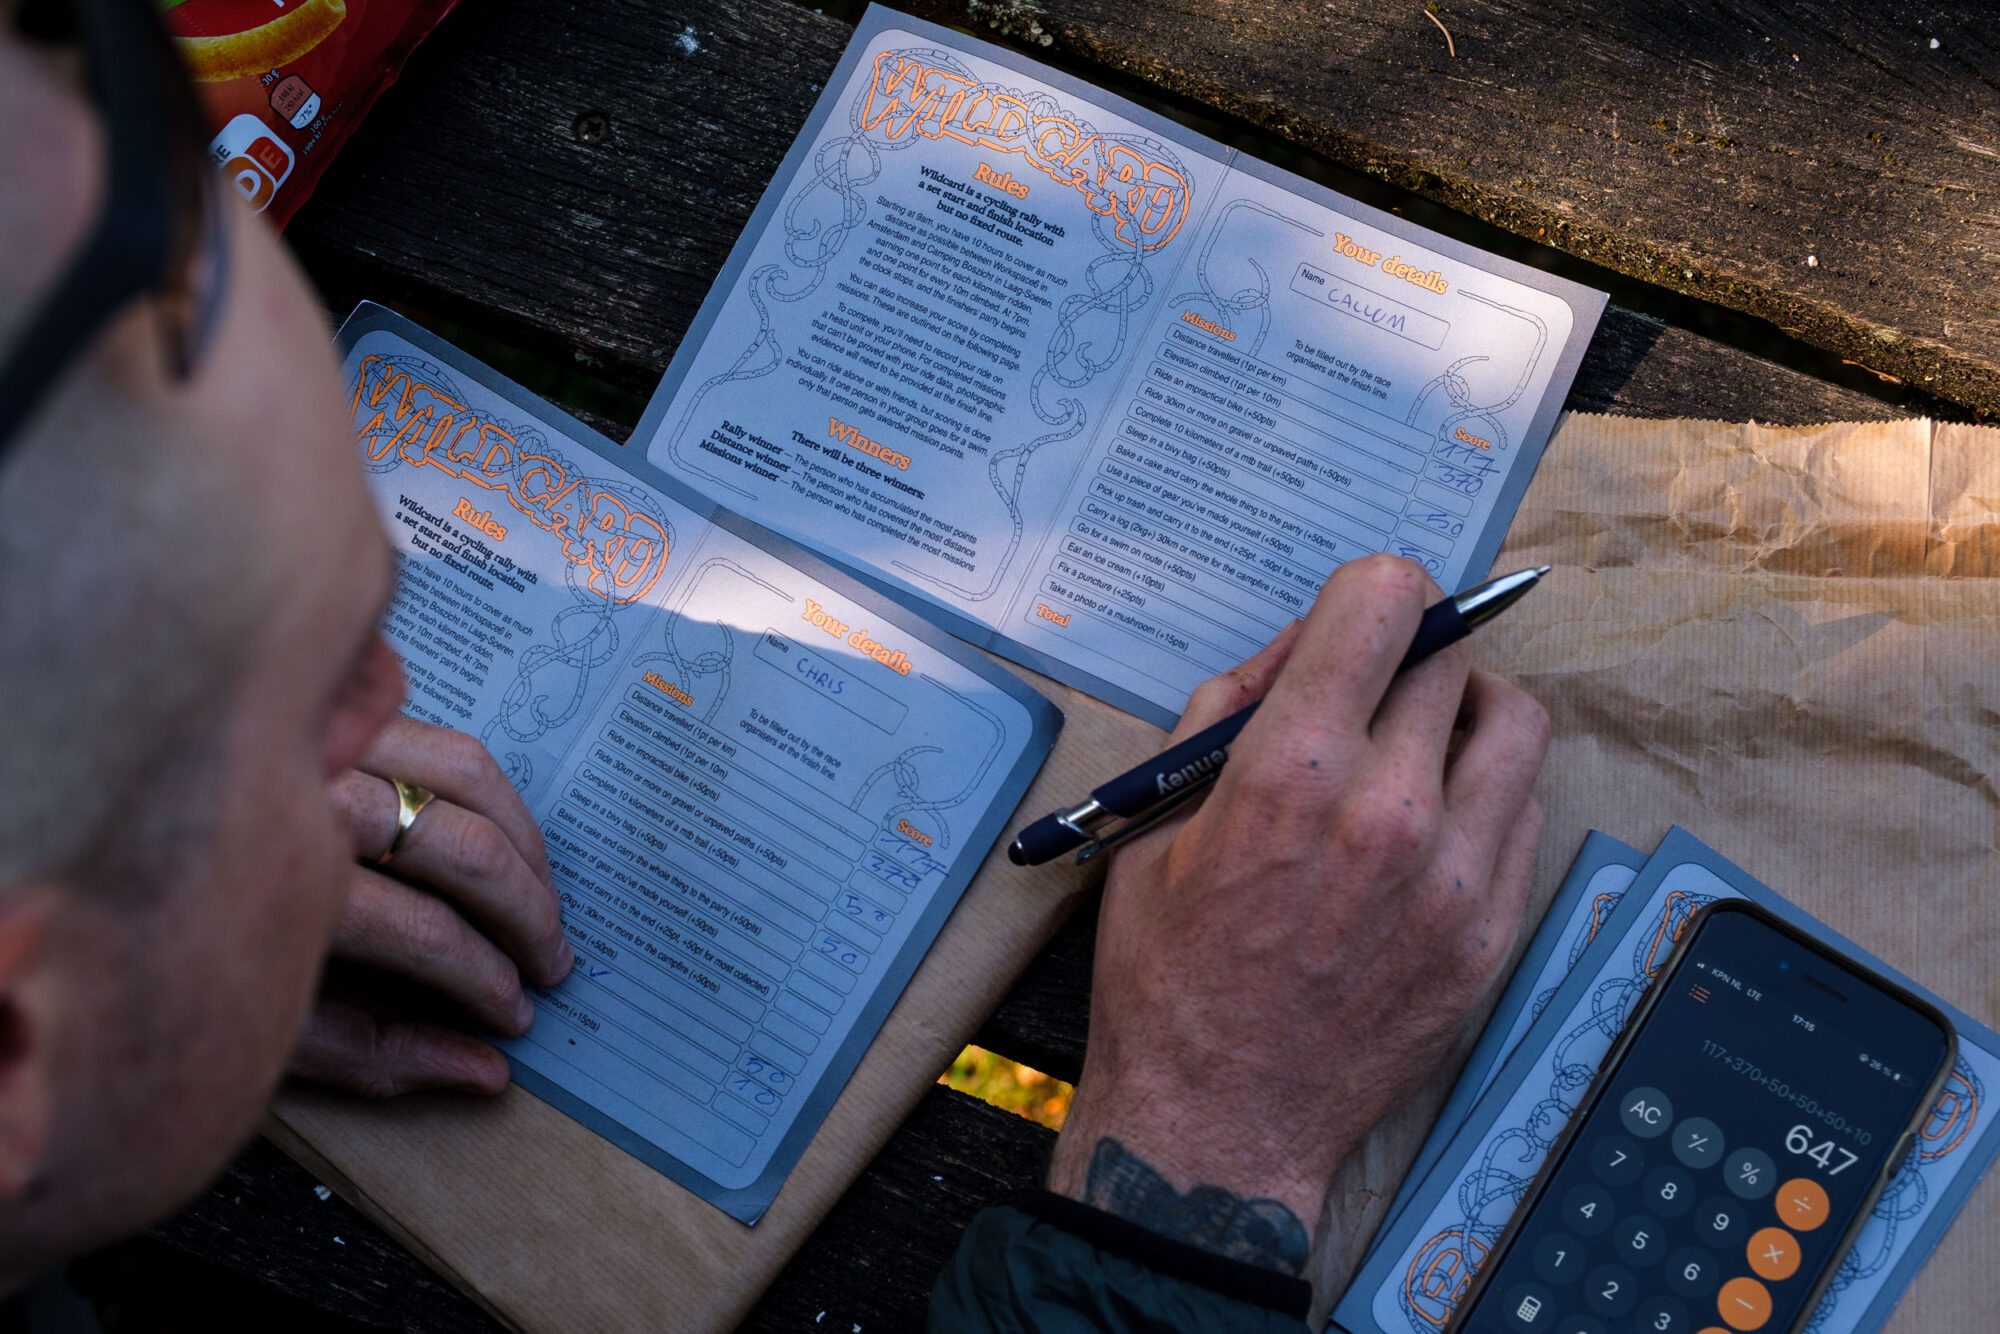 WILDCARD
Rules
Wildcard is a cycling rally with
a set start and finish location
but no fixed route.
Starting at 9am, you have 10 hours to cover as much
distance as possible between Workspace6 in
Amsterdam and Camping Boszicht in Laag-Soeren,
earning one point for each kilometer ridden,
and one point for every 10m climbed. At 7pm,
the clock stops, and the finishers' party begins.
You can also increase your score by completing
missions. These are outlined on the following page.
To compete, you'll need to record your ride on
a head unit or your phone. For completed missions
that can't be proved with your ride data, photographic
evidence will need to be provided at the finish line.
You can ride alone or with friends, but scoring is done
individually. If one person in your group goes for a swim,
only that person gets awarded mission points.
Winners
There will be three winners:
Rally winner — The person who has accumulated the most points
Distance winner — The person who has covered the most distance
Missions winner — The person who has completed the most missions
Your details
Name
CALLUM
To be filled out by the race
organisers at the finish line.
Missions
Score
Distance travelled (1pt per km)
117
Elevation climbed (1pt per 10m)
370
Ride an impractical bike (+50pts)
Ride 30km or more on gravel or unpaved paths (+50pts)
50
Complete 10 kilometers of a mtb trail (+50pts)
Sleep in a bivy bag (+50pts)
50
Bake a cake and carry the whole thing to the party (+50pts)
Use a piece of gear you've made yourself (+50pts)
Pick up trash and carry it to the end (+25pt, +50pt for most
Carry a log (2kg+) 30km or more for the campfire (+50pts)
Go for a swim on route (+50pts)
Eat an ice cream (+10pts)
Fix a puncture (+25pts)
Take a photo of a mushroom (+15pts)
Total
WILDCARD
Rules
Wildcard is a cycling rally with
a set start and finish location
but no fixed route.
you have 10 hours to cover as much
possible between Workspace6 in
Camping Boszicht in Laag-Soeren,
point for each kilometer ridden,
for every 10m climbed. At 7pm,
and the finishers' party begins.
your score by completing
on the following page.
your ride on
Your details
Name
CHRIS
To be filled out by the race
organisers at the finish line.
Missions
Score
Distance travelled (1pt per km)
117
Elevation climbed (1pt per 10m)
370
Ride an impractical bike (+50pts)
Ride 30km or more on gravel or unpaved paths (+50pts)
50
Complete 10 kilometers of a mtb trail (+50pts)
Sleep in a bivy bag (+50pts)
50
Bake a cake and carry the whole thing to the party (+50pts)
Use a piece of gear you've made yourself (+50pts)
up trash and carry it to the end (+25pt, +50pt for most collected)
(2kg+) 30km or more for the campfire (+50pts)
on route (+50pts)
50
✓
10
mushroom (+15pts)
KPN NL LTE
17:15
26 %
117+370+50+50+50+10
647
AC
+/−
%
÷
7
8
9
×
4
5
6
−
1
2
3
30 g
DE